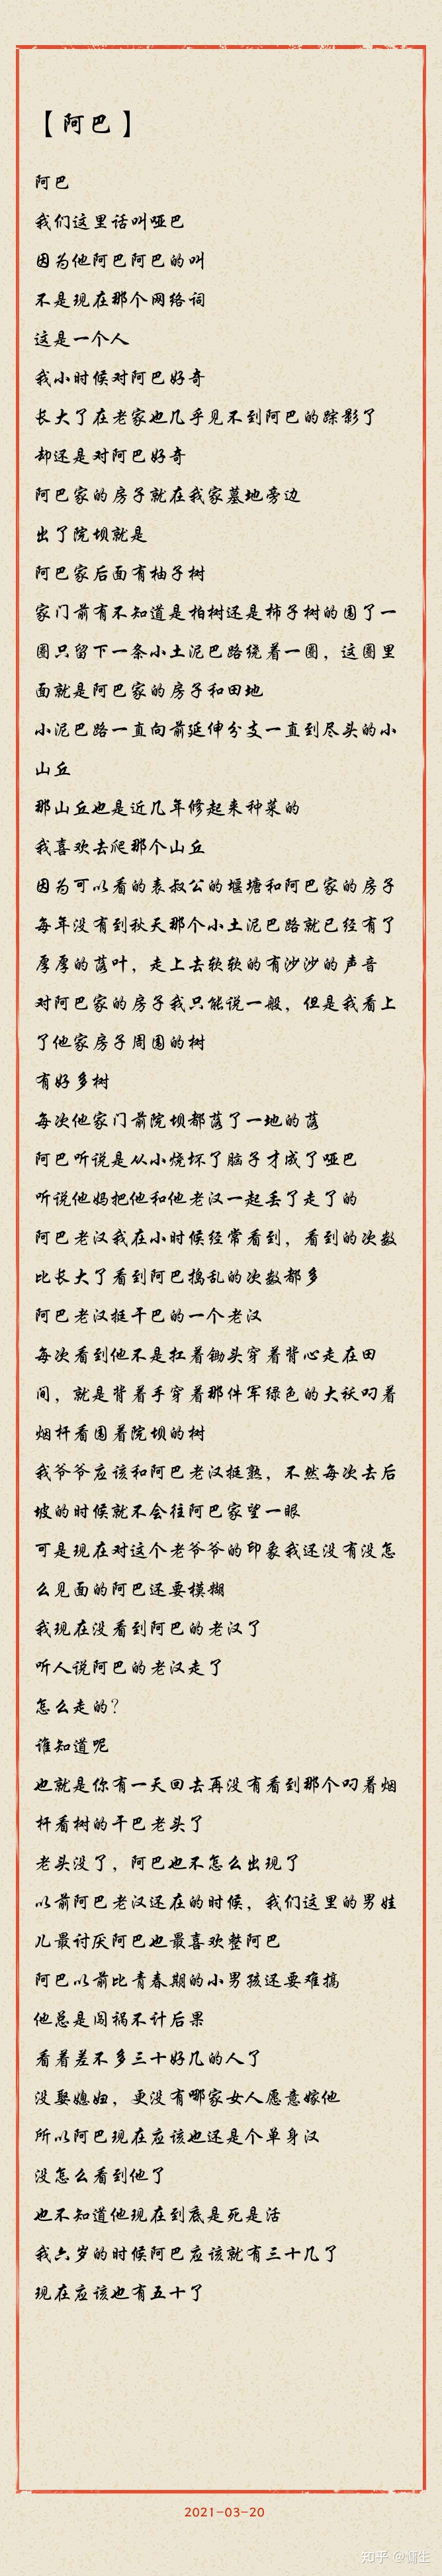 【阿巴】
阿巴
我们这里话叫哑巴
因为他阿巴阿巴的叫
不是现在那个网络词
这是一个人
我小时候对阿巴好奇
长大了在老家也几乎见不到阿巴的踪影了
却还是对阿巴好奇
阿巴家的房子就在我家墓地旁边
出了院坝就是
阿巴家后面有柚子树
家门前有不知道是柏树还是柿子树的围了一
圈只留下一条小土泥巴路绕着一圈，这圈里
面就是阿巴家的房子和田地
小泥巴路一直向前延伸分支一直到尽头的小
山丘
那山丘也是近几年修起来种菜的
我喜欢去爬那个山丘
因为可以看的表叔公的堰塘和阿巴家的房子
每年没有到秋天那个小土泥巴路就已经有了
厚厚的落叶，走上去软软的有沙沙的声音
对阿巴家的房子我只能说一般，但是我看上
了他家房子周围的树
有好多树
每次他家门前院坝都落了一地的落
阿巴听说是从小烧坏了脑子才成了哑巴
听说他妈把他和他老汉一起丢了走了的
阿巴老汉我在小时候经常看到，看到的次数
比长大了看到阿巴捣乱的次数都多
阿巴老汉挺干巴的一个老汉
每次看到他不是扛着锄头穿着背心走在田
间，就是背着手穿着那件军绿色的大袄叼着
烟杆看围着院坝的树
我爷爷应该和阿巴老汉挺熟，不然每次去后
坡的时候就不会往阿巴家望一眼
可是现在对这个老爷爷的印象我还没有没怎
么见面的阿巴还要模糊
我现在没看到阿巴的老汉了
听人说阿巴的老汉走了
怎么走的？
谁知道呢
也就是你有一天回去再没有看到那个叼着烟
杆看树的干巴老头了
老头没了，阿巴也不怎么出现了
以前阿巴老汉还在的时候，我们这里的男娃
儿最讨厌阿巴也最喜欢整阿巴
阿巴以前比青春期的小男孩还要难搞
他总是闯祸不计后果
看着差不多三十好几的人了
没娶媳妇，更没有哪家女人愿意嫁他
所以阿巴现在应该也还是个单身汉
没怎么看到他了
也不知道他现在到底是死是活
我六岁的时候阿巴应该就有三十几了
现在应该也有五十了
2021-03-20
知乎 @慵生